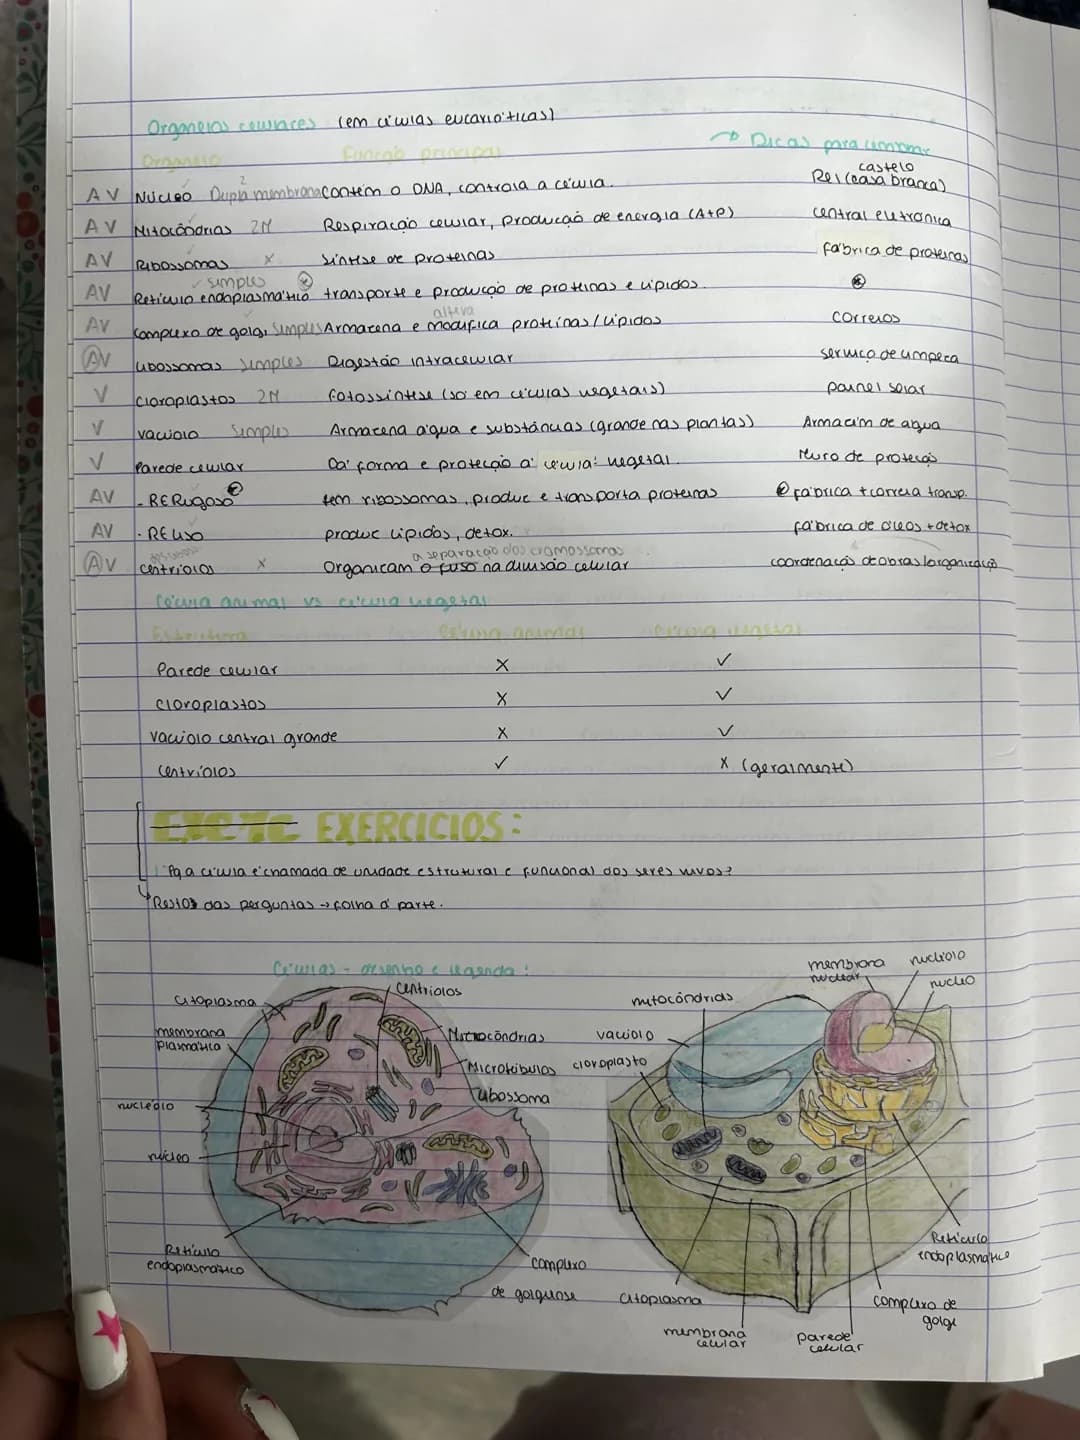 Organelos celulares (em células eucarióticas)
→ Dicas para lembrar
Organelo Função principal
castelo
AV Núcleo Dupla membrana Contém o DNA, controla a célula. Rei (casa branca)
AV Mitocôndrias 2M Respiração celular, produção de energia (ATP) central eletronica
AV Ribossomas x síntese de proteínas fábrica de proteinas
simples
AV Retículo endoplasmático transporte e produção de proteínas e lípidos.
altera
AV Complexo de golgi simples Armazena e modifica proteínas/lípidos correios
AV Lisossomas simples Digestão intracelular serviço de limpeza
V Cloroplastos 2M Fotossíntese (só em células vegetais) painel solar
V Vacúolo simples Armazena água e substâncias (grande nas plantas) Armazém de água
V Parede celular Dá forma e proteção à célula vegetal. Muro de proteção
AV - RERugoso tem ribossomas, produz e transporta proteínas fábrica + correia transp.
AV - RELiso produz lípidos, detox. fábrica de óleos + detox
a separação dos cromossomas
AV centríolos x Organizam o fuso na divisão celular coordenação de obras/organização
Célula animal vs célula vegetal
Estrutura Célula animal Célula vegetal
Parede celular X ✓
Cloroplastos X ✓
Vacúolo central grande X ✓
Centríolos ✓ X (geralmente)
EXERCICIOS:
Pq a célula é chamada de unidade estrutural e funcional dos seres vivos?
↳ Restos das perguntas → folha à parte.
Células - desenho e legenda:
membrana nuclear
nucléolo
nucleo
Citoplasma
Centríolos
mitocôndrias
membrana plasmática
Mitocôndrias
vacúolo
Microtúbulos
cloroplasto
Lisossoma
nucléolo
núcleo
Retículo endoplasmático
complexo de golgiense
citoplasma
Retículo endoplasmático
complexo de golgi
membrana celular
parede celular